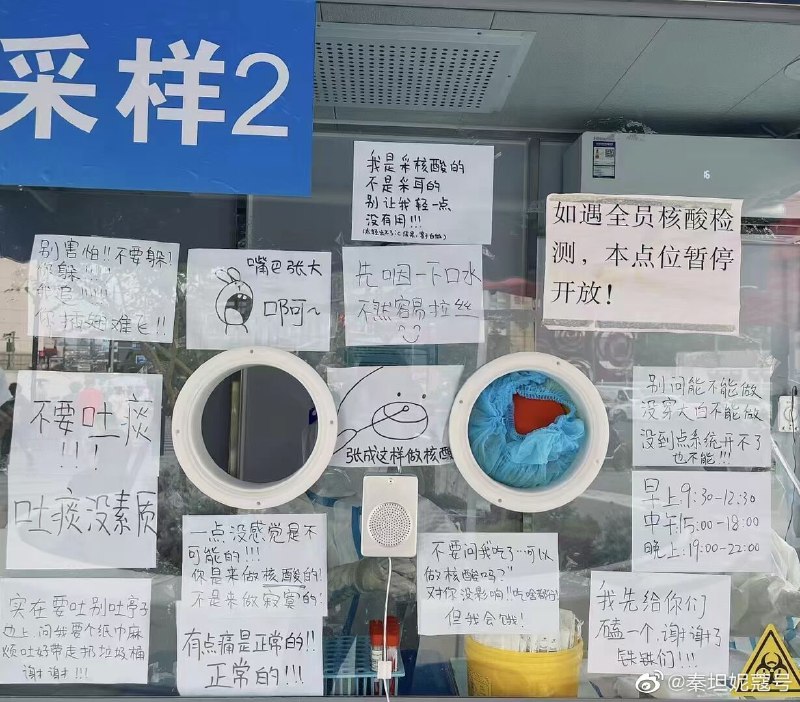 采样2
我是采核酸的
不是采耳的
别让我轻一点
没有用!!!
如遇全员核酸检
测，本点位暂停
开放！
别害怕!!不要躲!
你躲!!!!
我追!!!!
你插翅难飞!!
嘴巴张大
啊~
先咽一下口水
不然容易拉丝
不要吐痰
!!!
吐痰没素质
张成这样做核酸
别问能不能做
没穿大白不能做
没到点系统开不了
也不能!!!
早上9:30-12:30
中午15:00-18:00
晚上:19:00-22:00
一点没感觉是不
可能的!!!
你是来做核酸的!
不是来做寂寞的!
不要问我"吃了…可以
做核酸吗?"
对你没影响!!吃啥都行
但我会饿!
实在要吐别吐亭子
边上,问我要个纸巾麻
烦吐好带走扔垃圾桶
谢谢!!!
有点痛是正常的!!
正常的!!!
我先给你们
磕一个,谢谢了
铁铁们!!!
@秦坦妮蔻号